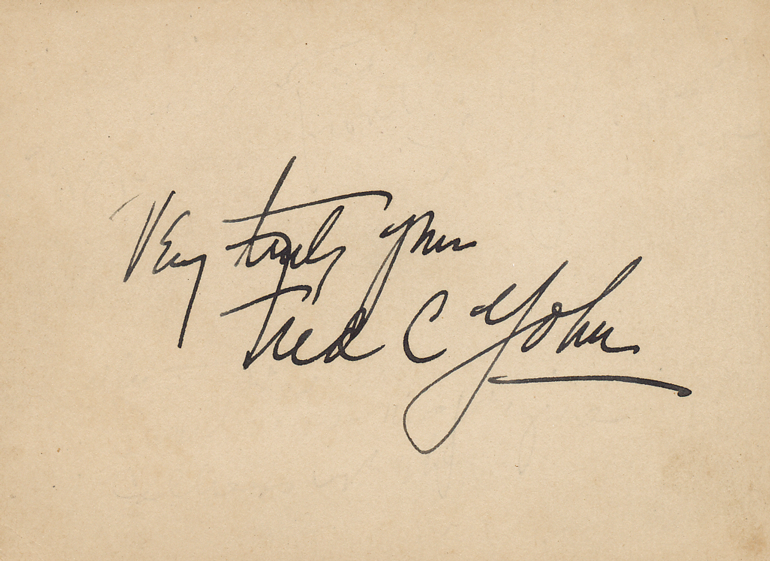 Very truly yours
Fred C Yohn